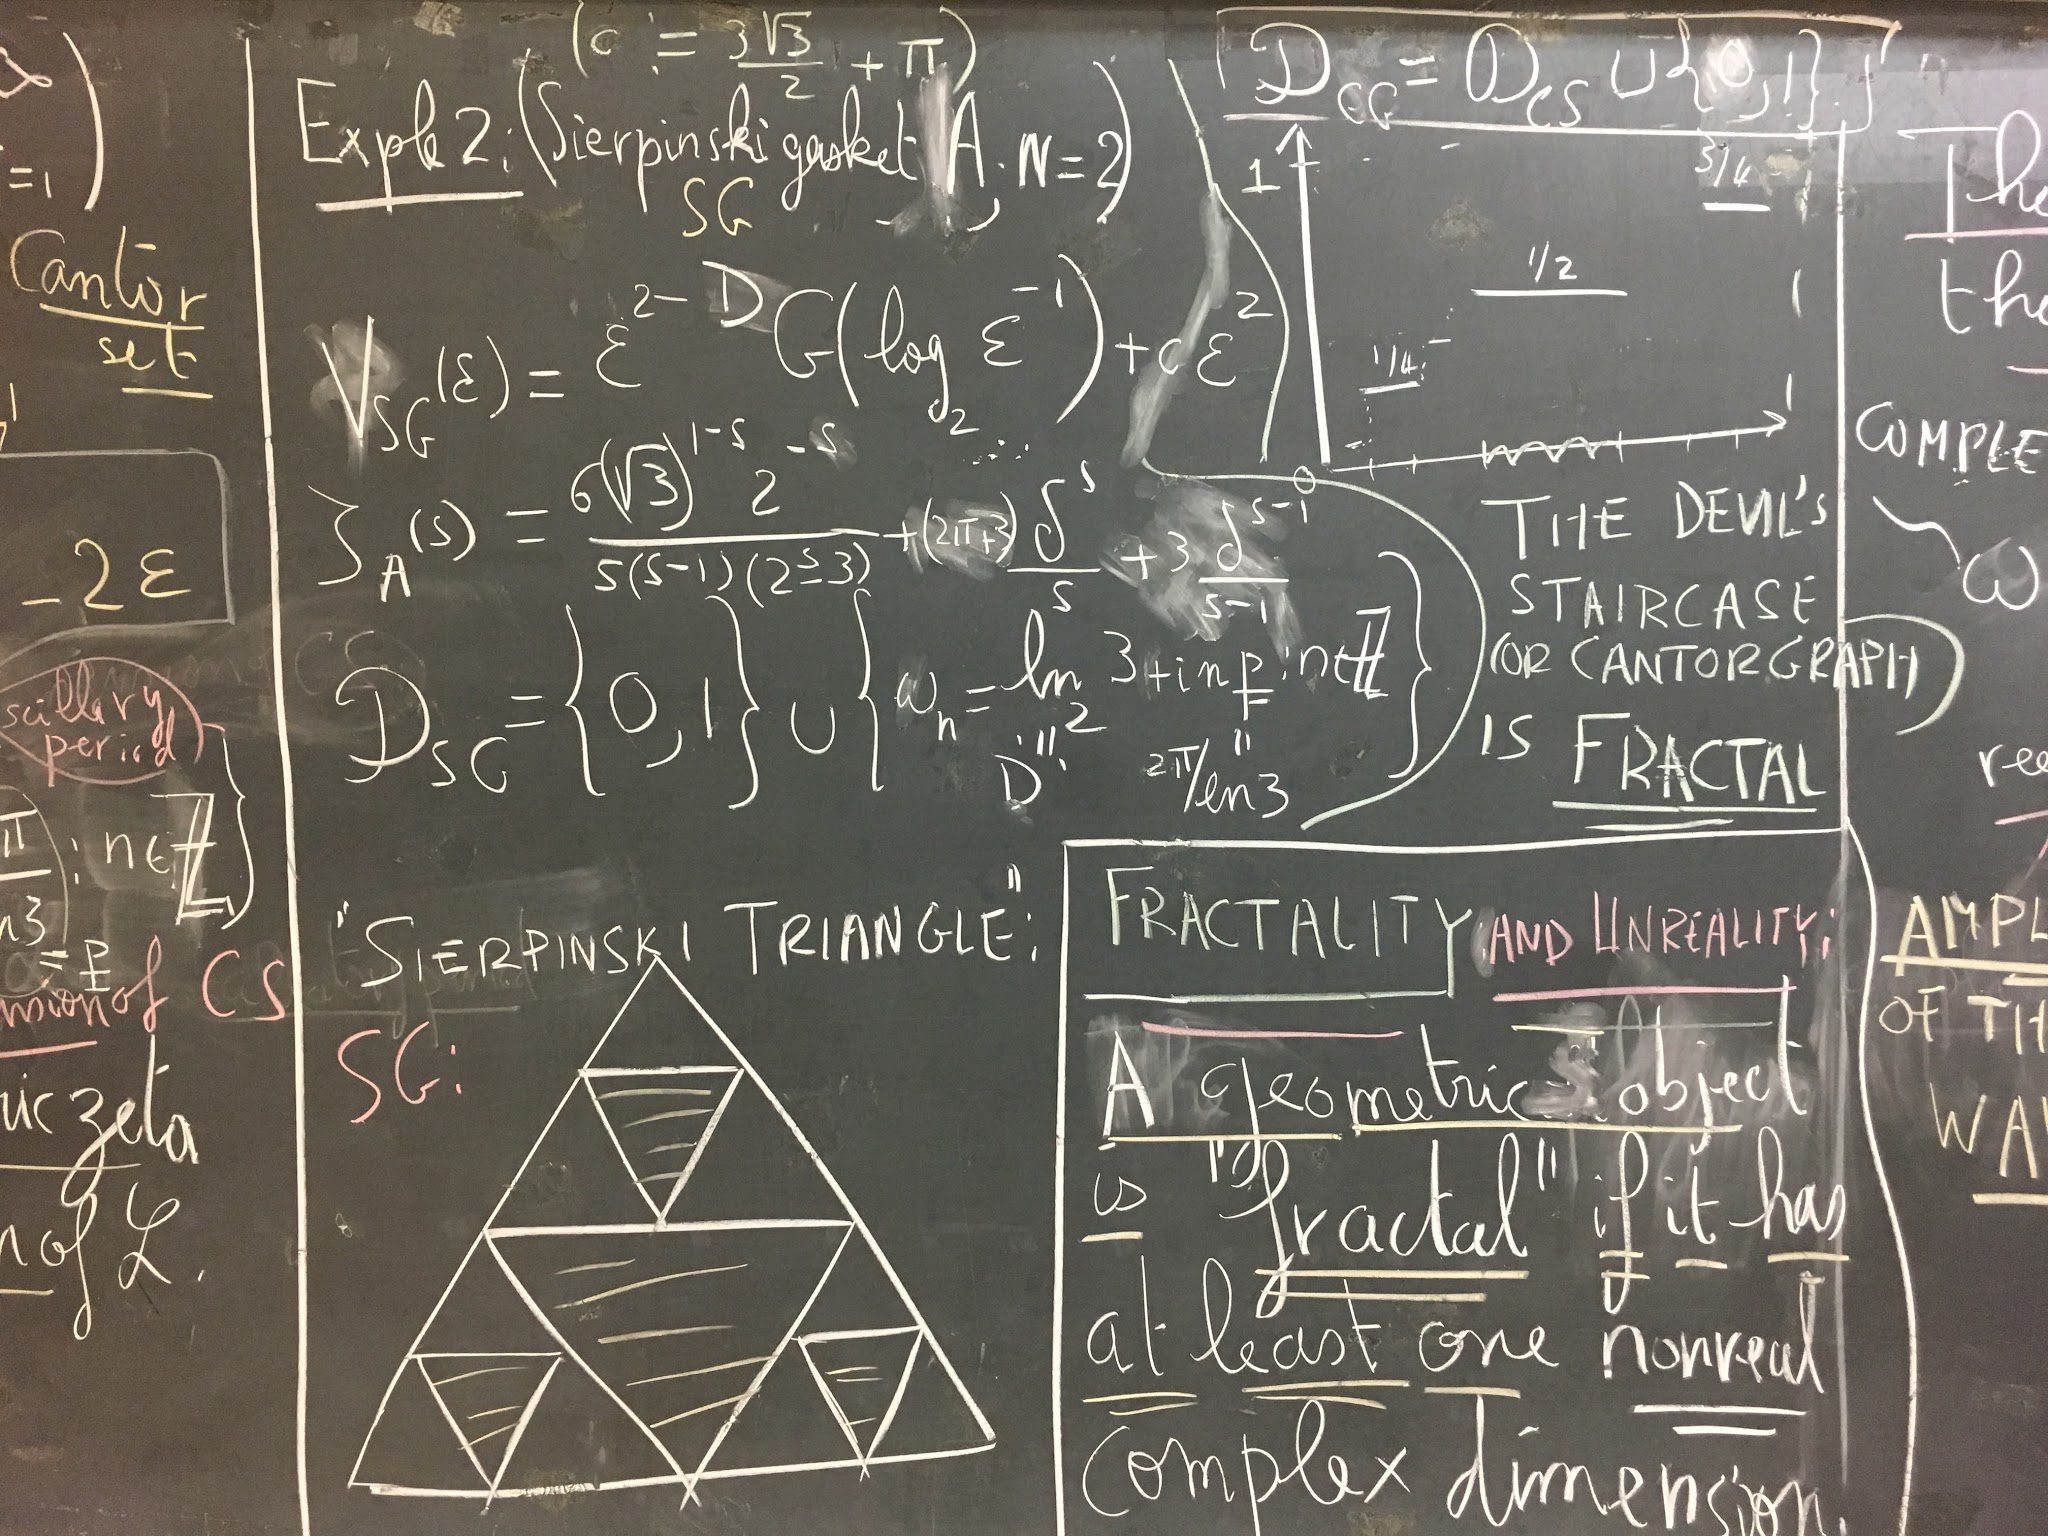 =1
Cantor
set
- 2ε
period
π : n∈ℤ}
= p
of CS
zeta
of ℒ.
(c := 3√3/2 + π)
Exple 2: (Sierpinski gasket A. N=2)
SG
V_SG(ε) = ε^{2-D} G(log_2 ε^{-1}) + cε^2
ζ_A(s) = 6(√3)^{1-s} 2^{-s} / s(s-1)(2^s-3) + (2π+3) δ^s/s + 3 δ^{s-1}/s-1
D_SG = {0,1} ∪ {ω_n = ln_2 3 + inp : n∈ℤ}
D 2π/ln3
"SIERPINSKI TRIANGLE":
SG:
D_CG = D_CS ∪ {0,1}.
1
3/4
1/2
1/4
0
1
THE DEVIL'S
STAIRCASE
(OR CANTOR GRAPH)
IS FRACTAL
FRACTALITY AND UNREALITY:
A geometric object
is "fractal" if it has
at least one nonreal
complex dimension.
ω
OF